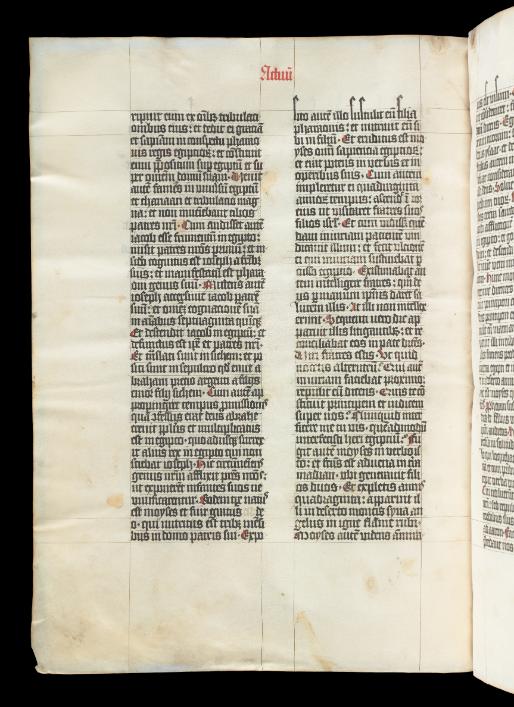 Actuū
ripuit eum ex oīb; tribulacō
onibus eius : et dedit ei graciā
et sapiam in conspectu pharao
nis regis egipti : et constituit
eum ppositum sup egiptū et su
per omnem domū suam · Uenit
autē fames in vniūsā egiptū
et chanaan et tribulacio mag
na : et non inueniebant cibos
patres nrī · Cum audisset autē
iacob esse frumentū in egipto :
misit patres nros primū : et in
scdo cognitus est ioseph a frīb;
suis : et manifestatū est phara
oni genus suū · Mittens autē
ioseph accersiuit iacob patrē
suū : et omnē cognacionē suā
in aīabus septuagintaquīq;
Et descendit iacob in egiptū : et
defunctus est ipē et patres nrī ·
Et trāslati sunt in sichem : et po
siti sunt in sepulcro qd emit a
braham precio argenti a filijs
emor filij sichem · Cum autē ap
propinquaret tempus pmissionis
quā cōfessus erat deus abrahe
creuit pplus et multiplicatus
est in egipto · quoadusq; surrex
it alius rex in egipto qui non
sciebat ioseph · Hic circūueniēs
genus nrm afflixit pres nros :
ut exponerēt infantes suos ne
viuificarentur · Eodem tpe natus
est moyses et fuit gratus de
o · qui nutritus est trib; mēsi
bus in domo patris sui · Expo
sito autē illo sustulit eū filia
pharaonis : et nutriuit eū si
bi in filiū · Et eruditus est mo
yses omī sapiencia egipcioꝝ :
et erat potens in verbis et in
operibus suis · Cum autem
impleretur ei quadraginta
annoꝝ tempus : ascendit ī cor
eius ut visitaret fratres suos
filios isrl · Et cum vidisset quē
dam iniuriam pacientē vin
dicauit illum : et fecit vlcionē
ei qui iniuriam sustinebat p
cusso egipcio · Existimabat au
tem intelligere fratres : qm̄ de
us p manum ipīus daret sa
lutem illis · At illi non intellex
erunt · Sequenti vero die ap
paruit illis litigantib; : et re
conciliabat eos in pace dicēs ·
Viri fratres estis · Ut quid
nocetis alterutrū? Qui autē
iniuriam faciebat proximo :
reppulit eū dicens · Quis te cō
stituit principem et iudicem
super nos? Nunquid inter
ficere me tu vis · quēadmodū
interfecisti heri egipciū? Fu
git autē moyses in verbo is
to : et fcūs est aduena in trā
madian · vbi generauit fili
os duos · Et expletis annis
quadraginta : apparuit il
li in deserto montis syna an
gelus in igne flāme rubi ·
Moyses autē videns āmira